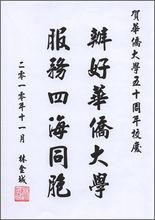 賀華僑大學五十周年校慶
辦好華僑大學
服務四海同胞
二零一零年十一月
林金城